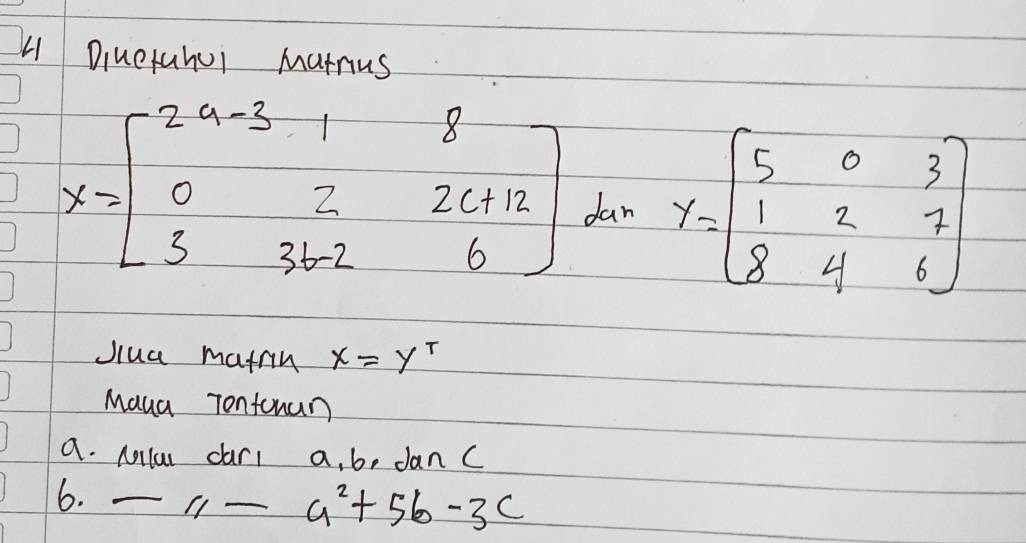 4 Diketahui Matriks
X = [ 2a-3 1 8
0 2 2c+12
3 3b-2 6 ] dan Y = [ 5 0 3
1 2 7
8 4 6 ]
Jika matrik X = Y^T
Maka Tentukan
a. Nilai dari a, b, dan c
b. — // — a² + 5b - 3c